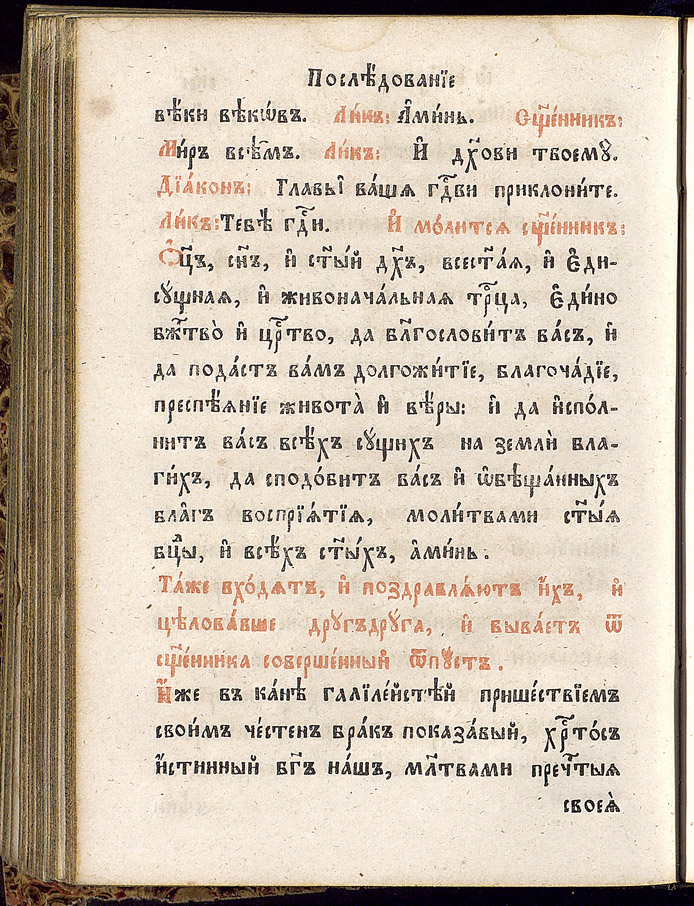 Послѣ́дованїе
вѣ́ки вѣкѡ́въ. Ли́къ: А҆ми́нь. Сщ҃е́нникъ:
Ми́ръ всѣ́мъ. Ли́къ: И҆ дх҃ови твоемꙋ̀.
Дїа́конъ: Главы̑ ва́шѧ гд҇ви приклони́те.
Ли́къ: Тебѣ̀ гд҇и. И҆ мо́литсѧ сщ҃е́нникъ:
Ѻ҆ц҃ъ, сн҃ъ, и҆ ст҃ы́й дх҃ъ, всест҃а́ѧ, и҆ є҆ди-
сꙋ́щнаѧ, и҆ живонача́льнаѧ трⷪ҇ца, є҆ди́но
бж҃тво̀ и҆ црⷭ҇тво, да бл҃гослови́тъ ва́съ, и҆
да пода́стъ ва́мъ долгожи́тїе, благоча́дїе,
преспѣ́ѧнїе живота̀ и҆ вѣ́ры: и҆ да и҆спо́л-
нитъ ва́съ всѣ́хъ сꙋ́щихъ на землѝ бла-
ги́хъ, да сподо́битъ ва́съ и҆ ѡ҆бѣща́нныхъ
бла̑гъ воспрїѧ́тїѧ, моли́твами ст҃ы́ѧ
бц҃ы, и҆ всѣ́хъ ст҃ы́хъ, а҆ми́нь.
Та́же вхо́дѧтъ, и҆ поздравлѧ́ютъ и҆̀хъ, и҆
цѣлова́вше дрꙋгъдрꙋ́га, и҆ быва́етъ ѿ
сщ҃е́нника соверше́нный ѿпꙋ́стъ.
И҆́же въ ка́нѣ галїле́йстѣй прише́ствїемъ
свои́мъ че́стенъ бра́къ показа́вый, хрⷭ҇то́съ
и҆́стинный бг҃ъ на́шъ, мл҃твами пречⷭ҇тыѧ
своеѧ̀